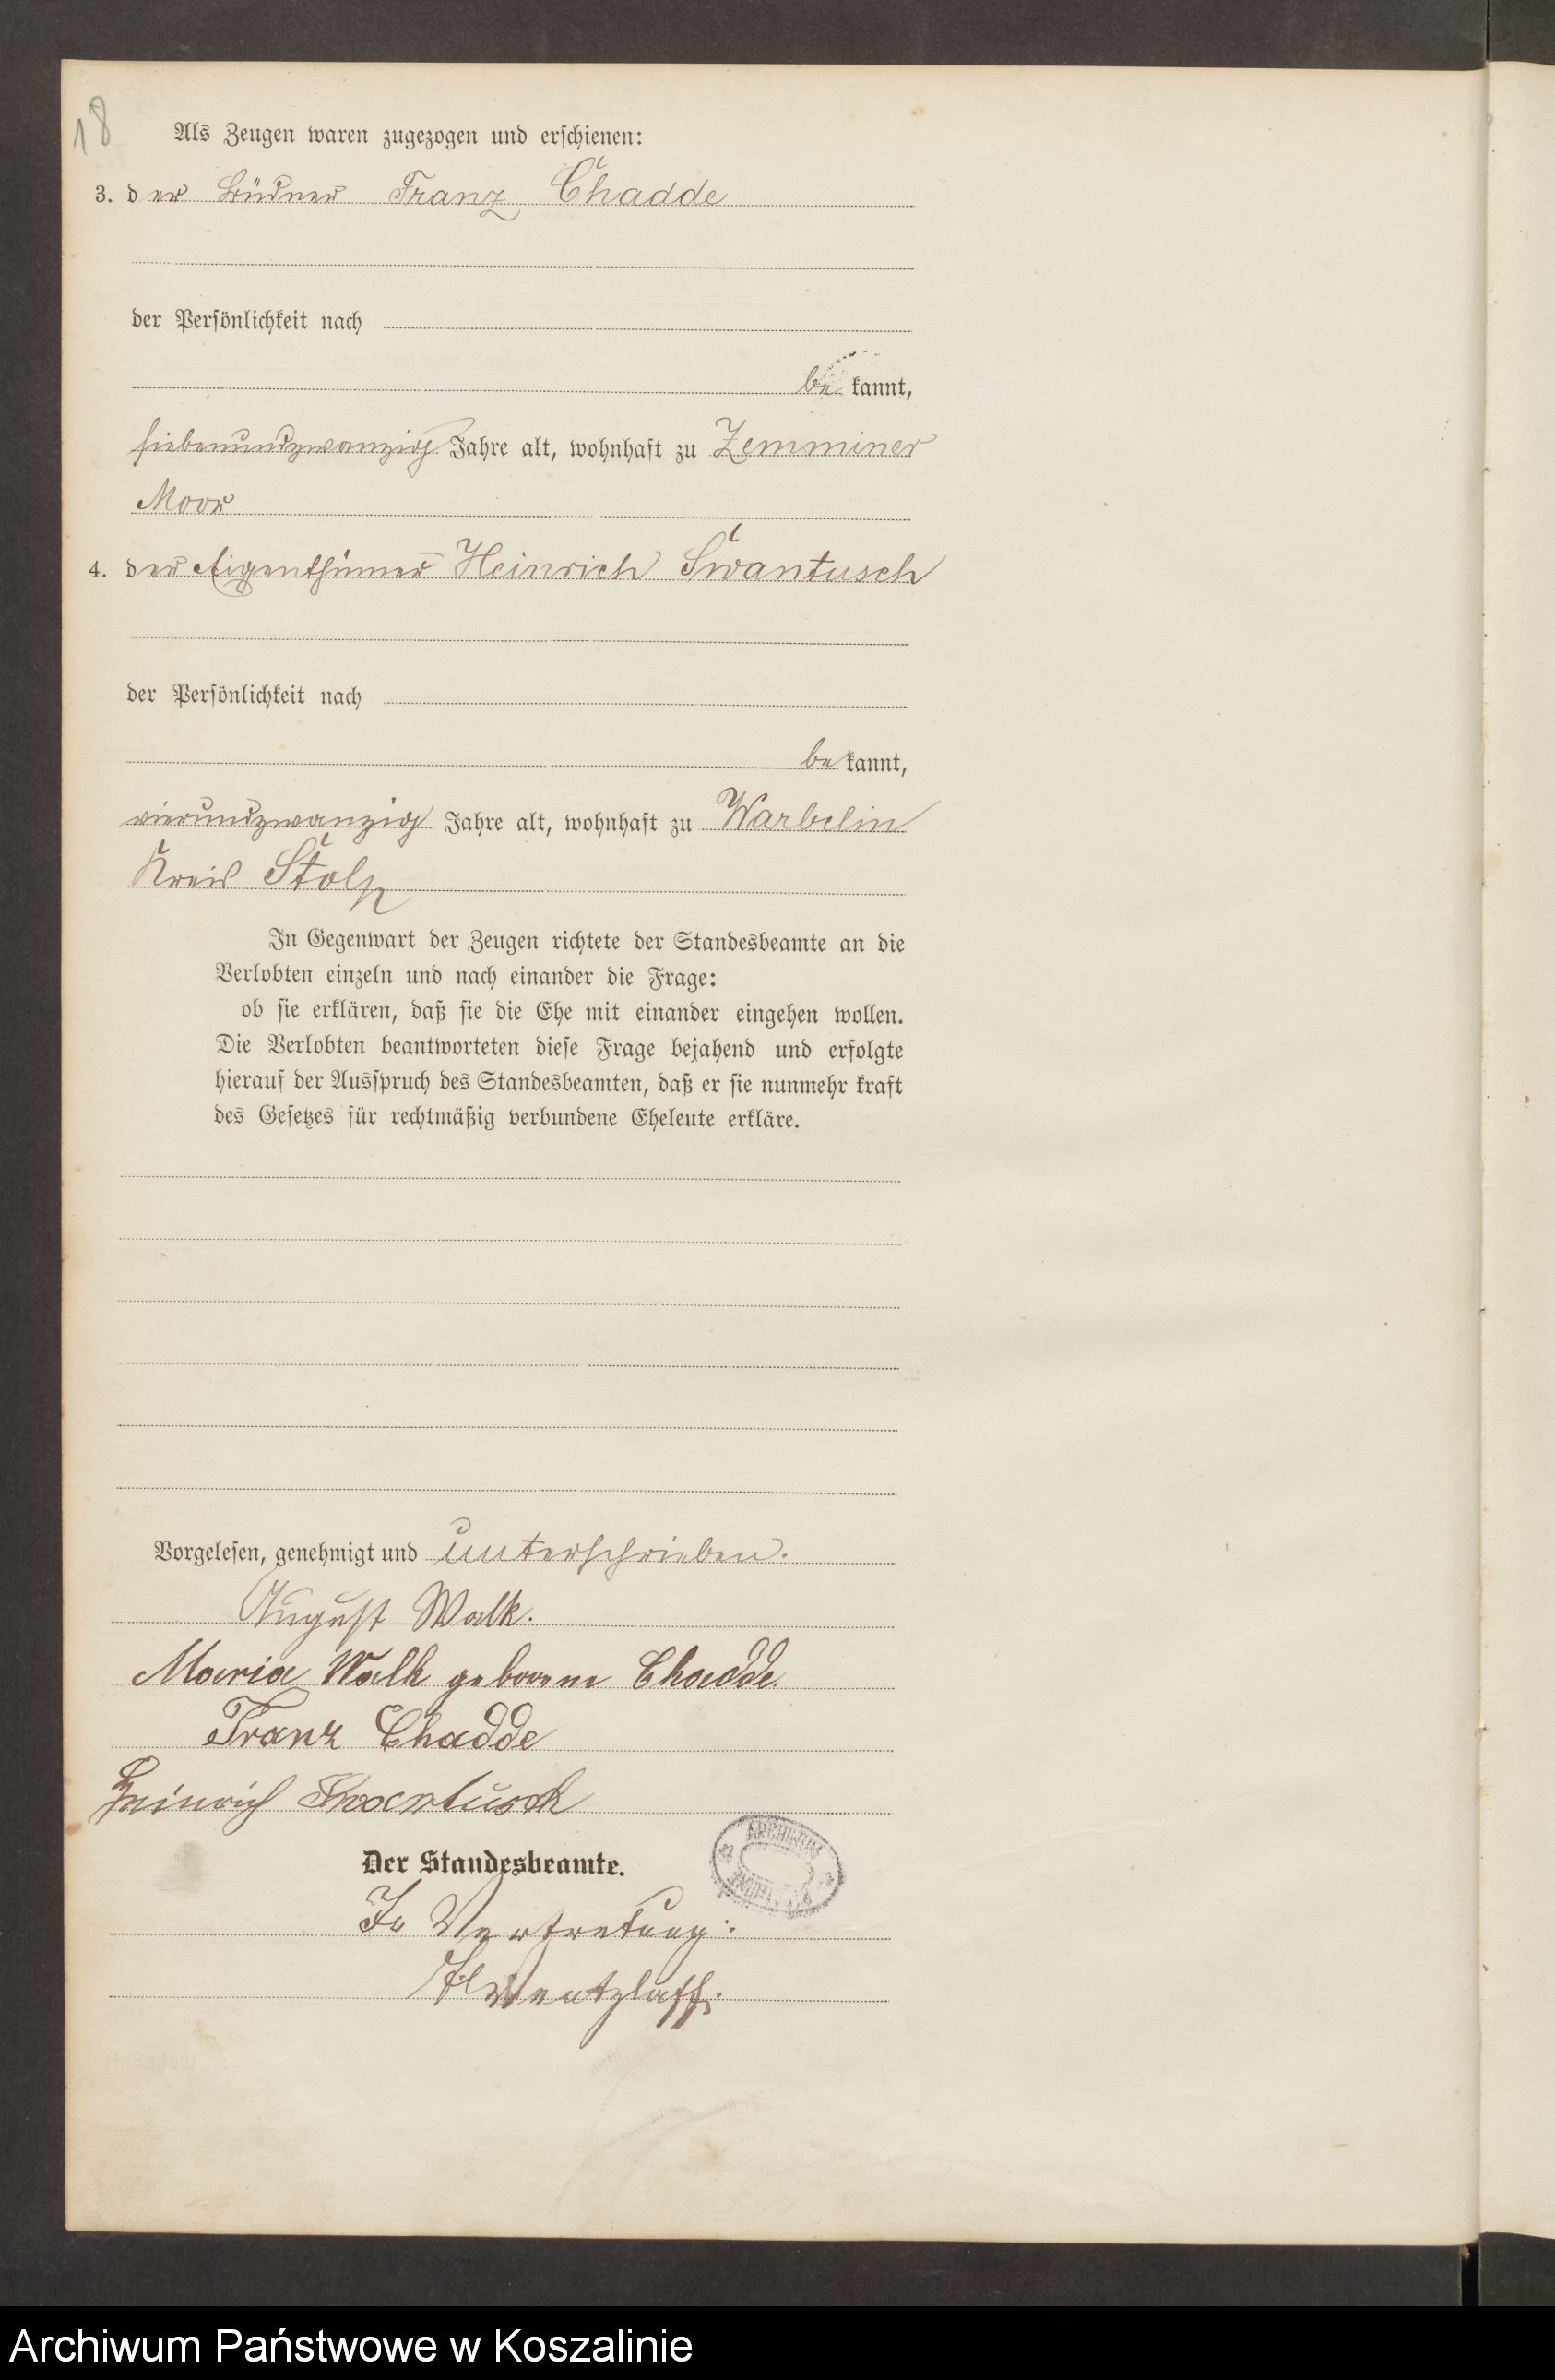 18
Als Zeugen waren zugezogen und erschienen:
3. der Büdner Franz Chadde
der Persönlichkeit nach
bekannt,
siebenundzwanzig Jahre alt, wohnhaft zu Zemminer
Moor
4. der Eigenthümer Heinrich Swantusch
der Persönlichkeit nach
bekannt,
vierundzwanzig Jahre alt, wohnhaft zu Warbelin
Kreis Stolp
In Gegenwart der Zeugen richtete der Standesbeamte an die
Verlobten einzeln und nach einander die Frage:
ob sie erklären, daß sie die Ehe mit einander eingehen wollen.
Die Verlobten beantworteten diese Frage bejahend und erfolgte
hierauf der Ausspruch des Standesbeamten, daß er sie nunmehr kraft
des Gesetzes für rechtmäßig verbundene Eheleute erkläre.
Vorgelesen, genehmigt und unterschrieben.
August Walk.
Maria Walk geborene Chadde.
Franz Chadde
Heinrich Swantusch
ARCHIWUM
Der Standesbeamte.
In Vertretung:
Wentzlaff.
Archiwum Państwowe w Koszalinie